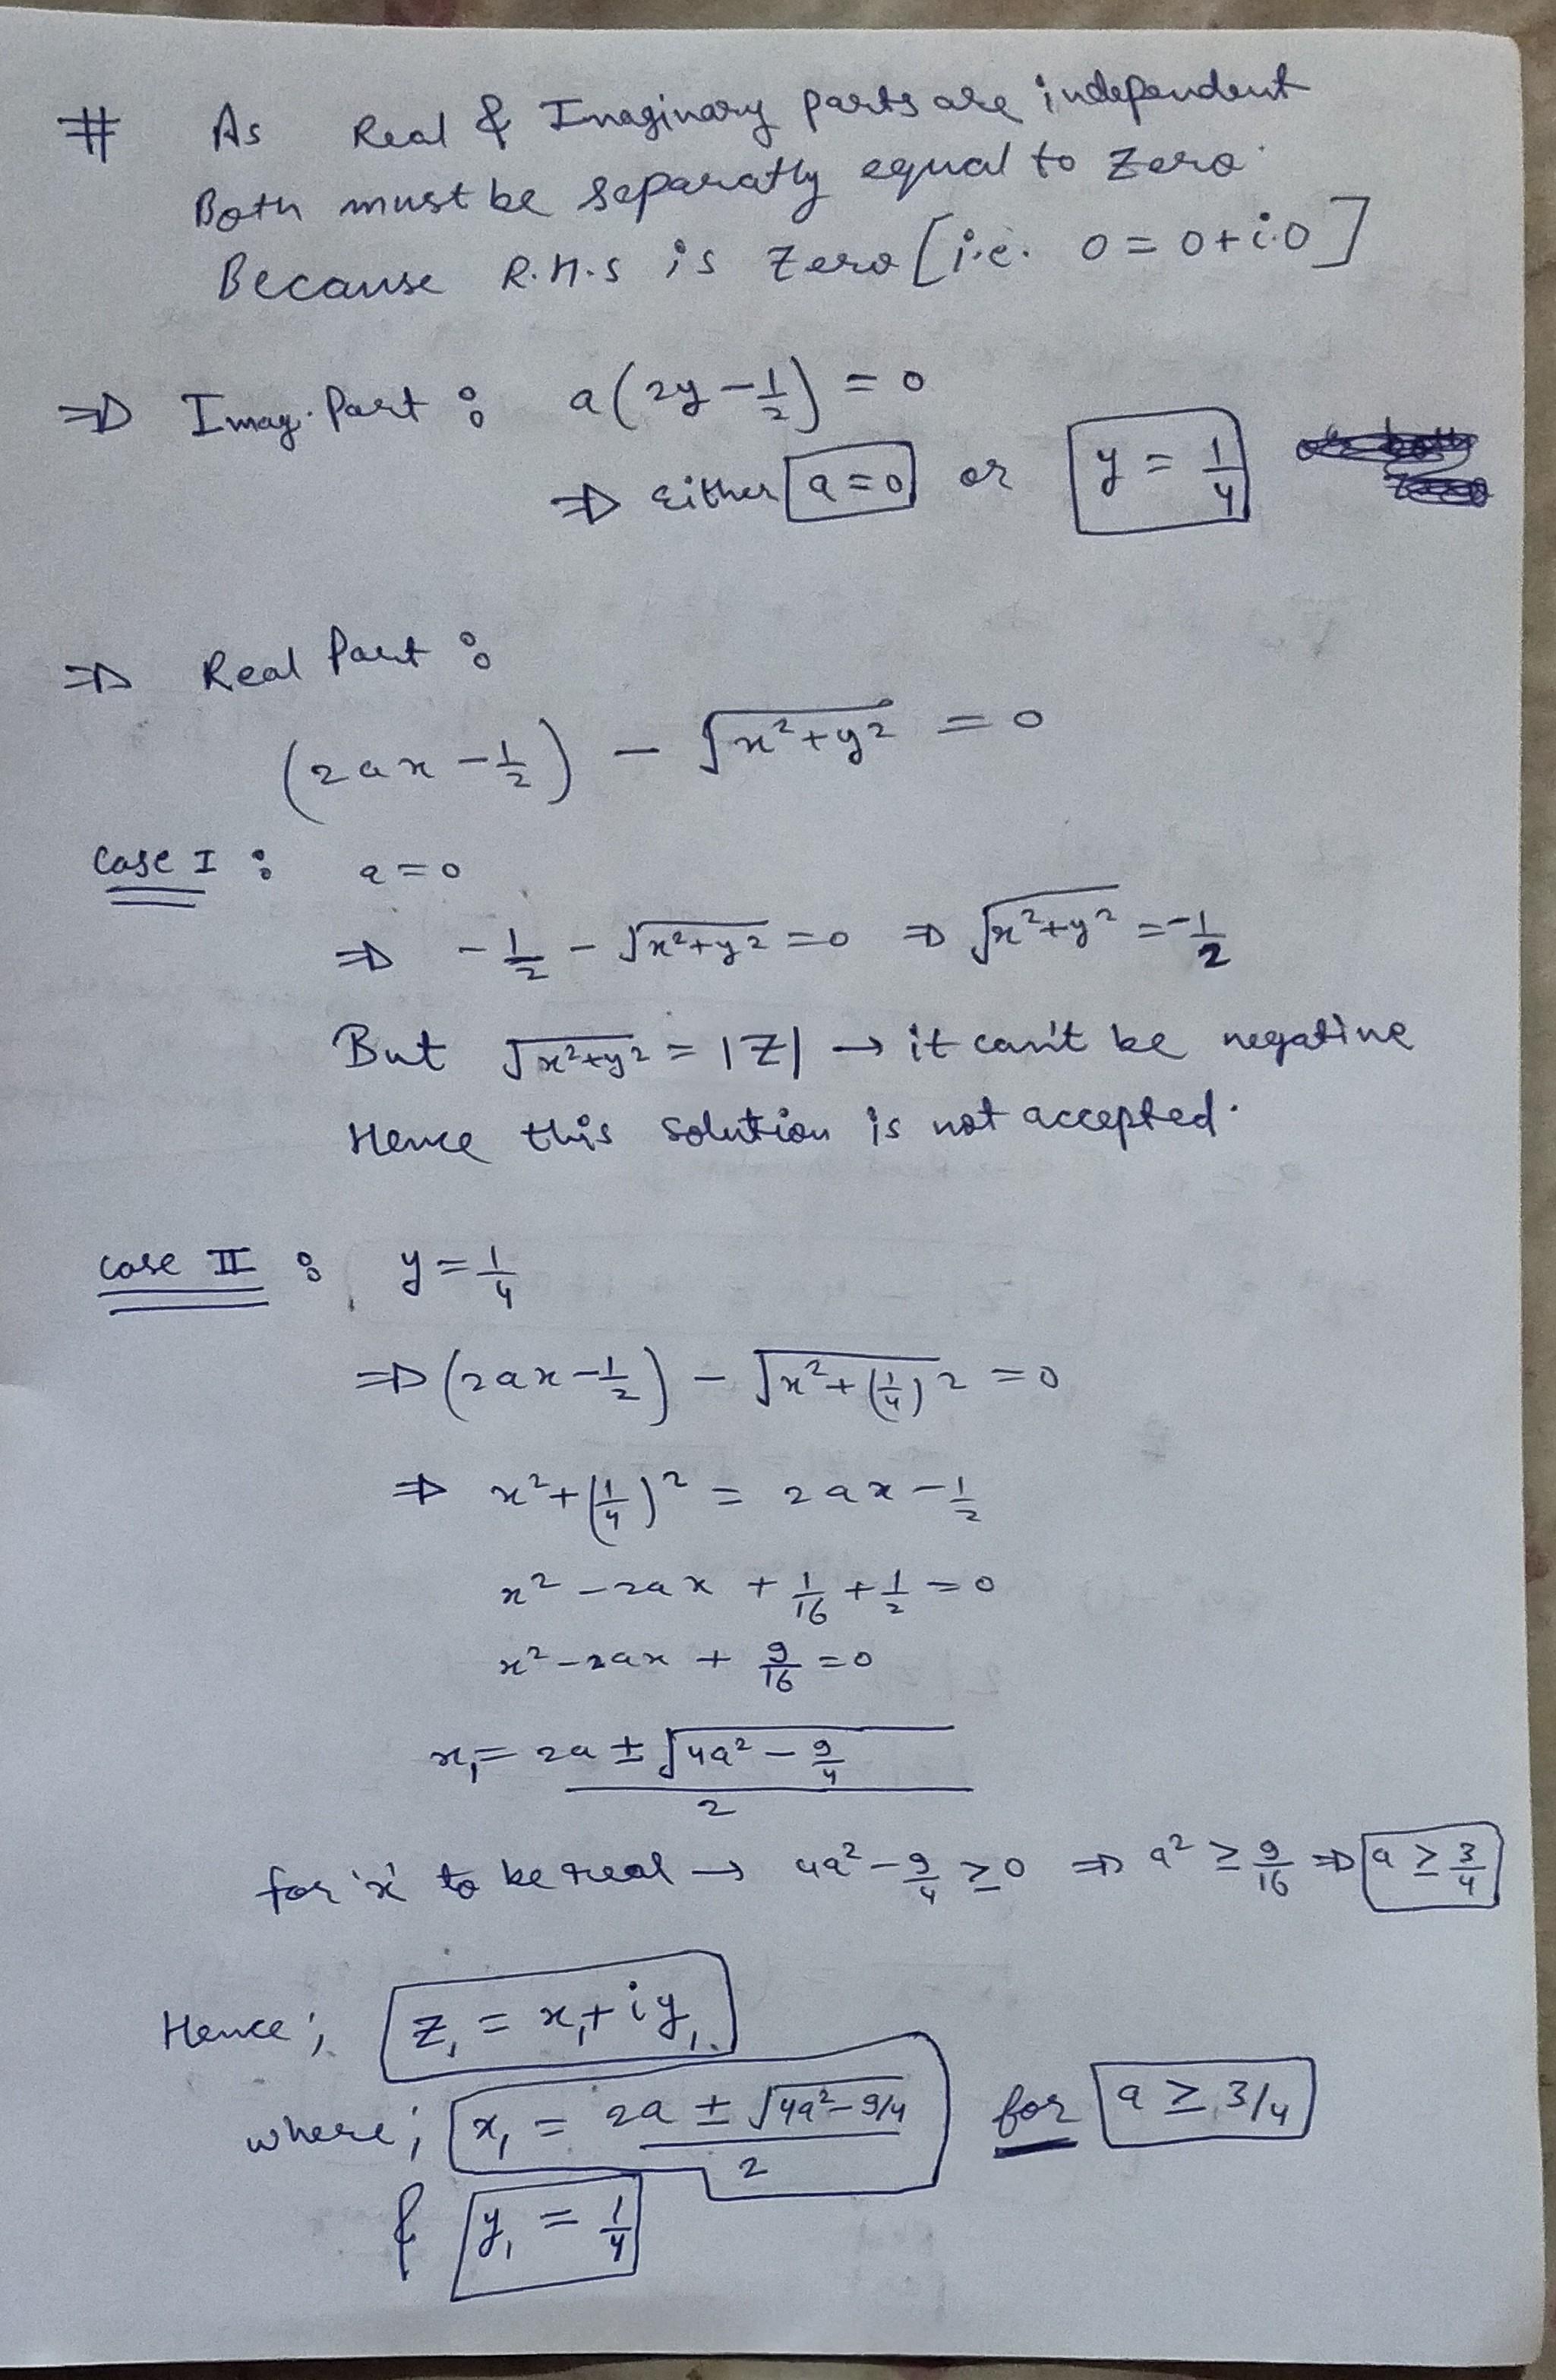 # As Real & Imaginary parts are independent
Both must be separatly equal to zero.
Because R.H.S is zero [i.e. 0 = 0+i.0]
⇒ Imag. Part : a(2y - 1/2) = 0
⇒ Either a=0 or y = 1/4
⇒ Real Part :
(2ax - 1/2) - √(x²+y²) = 0
Case I : a=0
⇒ -1/2 - √(x²+y²) = 0 ⇒ √(x²+y²) = -1/2
But √(x²+y²) = |Z| → it can't be negative
Hence this solution is not accepted.
Case II : y = 1/4
⇒ (2ax - 1/2) - √(x²+(1/4)²) = 0
⇒ x²+(1/4)² = 2ax - 1/2
x² - 2ax + 1/16 + 1/2 = 0
x² - 2ax + 9/16 = 0
x₁ = (2a ± √(4a² - 9/4))/2
for 'x' to be real → 4a² - 9/4 ≥ 0 ⇒ a² ≥ 9/16 ⇒ a ≥ 3/4
Hence; Z₁ = x₁+iy₁.
where; x₁ = (2a ± √(4a²-9/4))/2 for a ≥ 3/4
& y₁ = 1/4